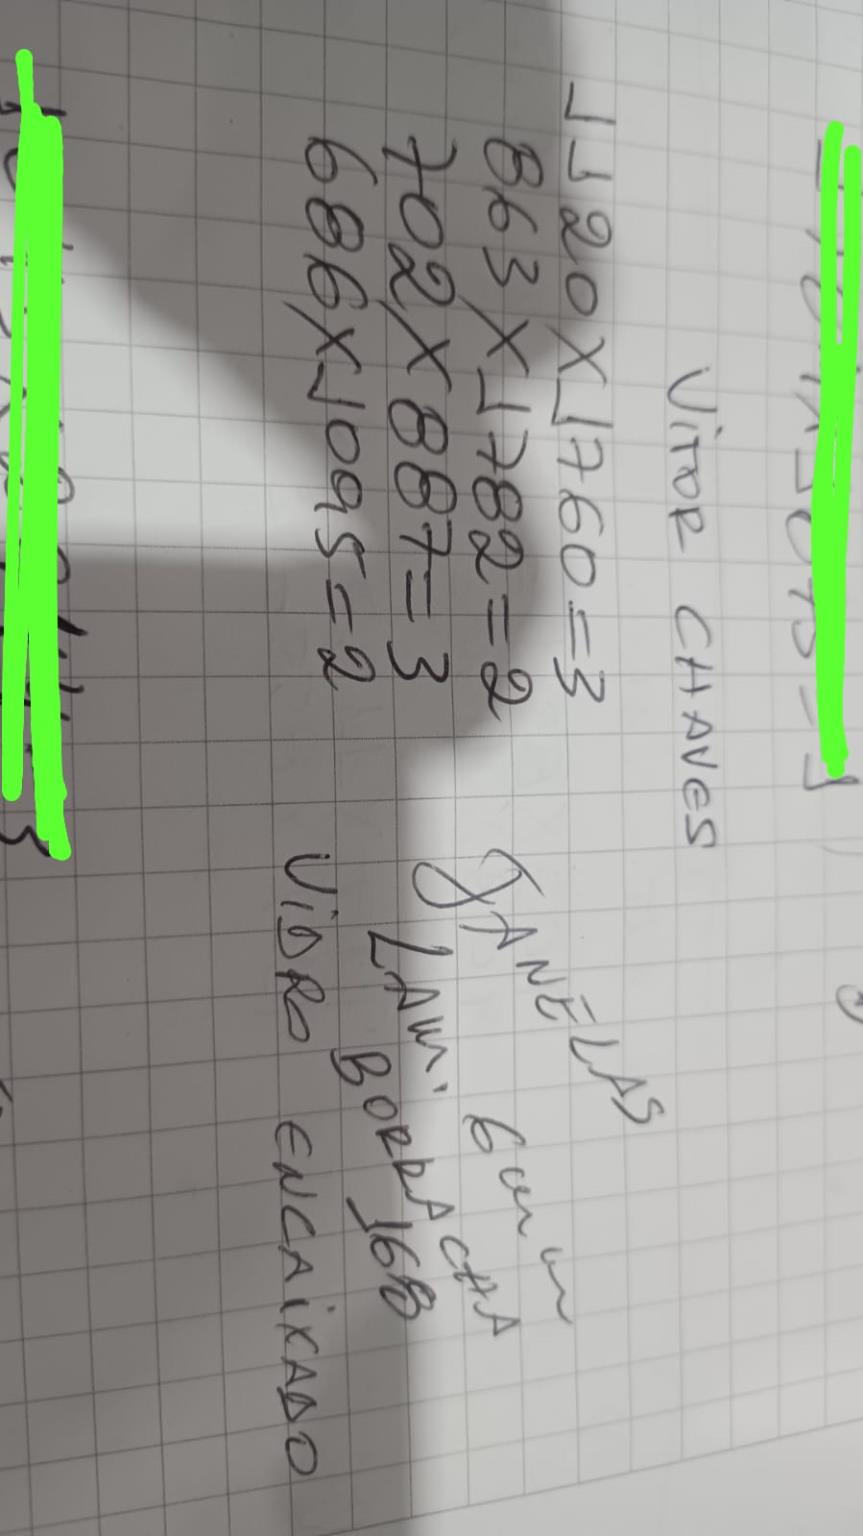 VITOR CHAVES
1120 X 1760 = 3
863 X 1782 = 2
702 X 887 = 3
686 X 1095 = 2
JANELAS
LAM. 6mm
BORRACHA
168
VIDRO ENCAIXADO